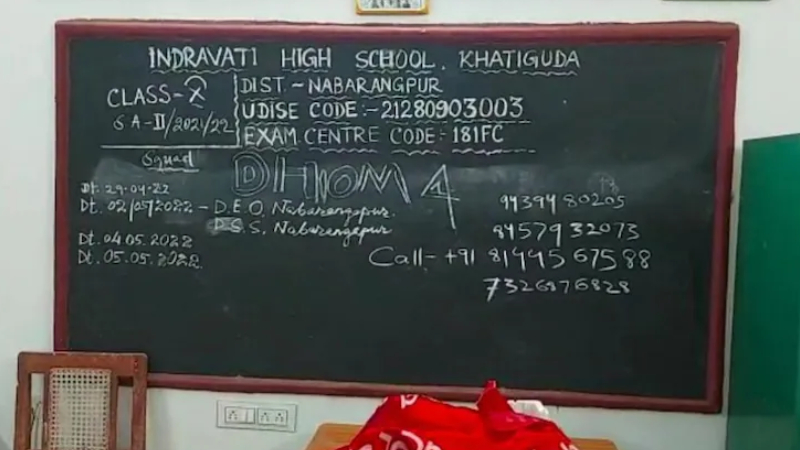 INDRAVATI HIGH SCHOOL. KHATIGUDA
CLASS-X
SA-II/2021/22
DIST.-NABARANGPUR
UDISE CODE:-21280903003
EXAM.CENTRE CODE:-181FC
Squad
DHOOM 4
Dt. 29.04.22
Dt. 02/05/2022 - D.E.O. Nabarangpur.
D.S.S. Nabarangpur
Dt. 04.05.2022
Dt. 05.05.2022
9439480205
8457932073
Call- +91 8144567588
7326876828